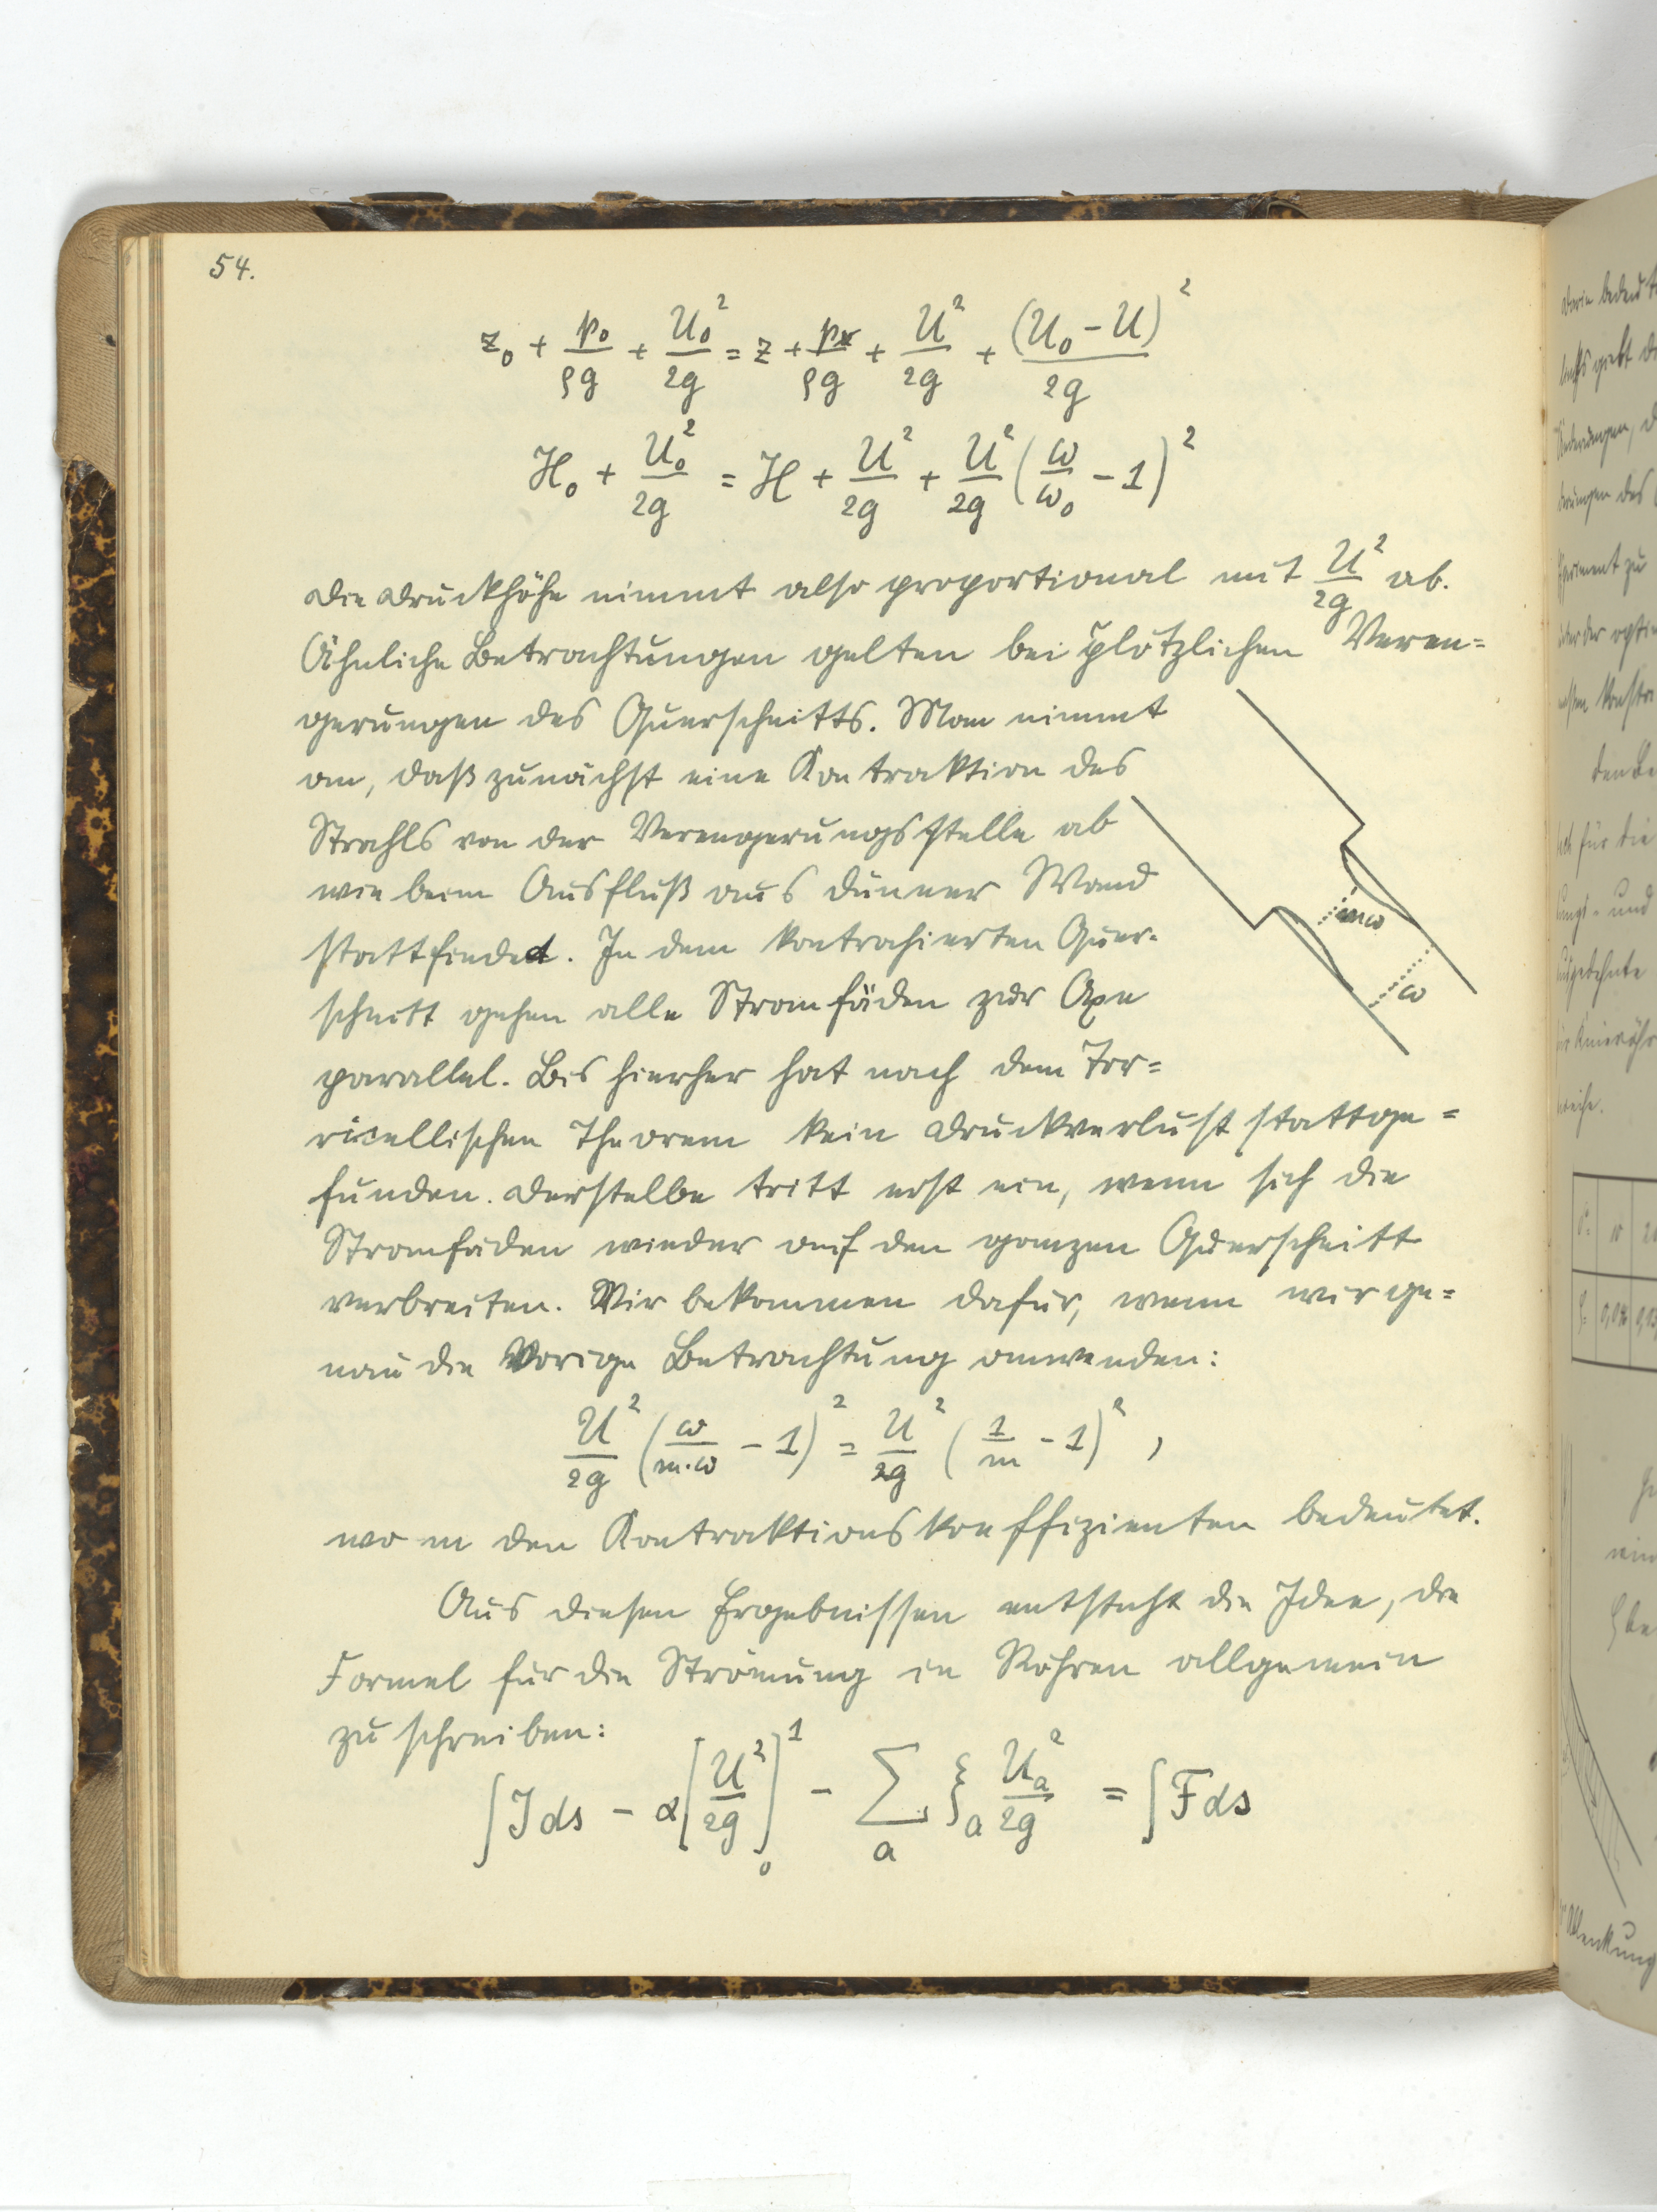 54.
z₀ + p₀/ρg + U₀²/2g = z + p/ρg + U²/2g + (U₀ - U)²/2g
H₀ + U₀²/2g = H + U²/2g + U²/2g (ω/ω₀ - 1)²
Die Druckhöhe nimmt also proportional mit U²/2g ab.
Ähnliche Betrachtungen gelten bei plötzlichen Veren=
gerungen des Querschnitts. Man nimmt
an, daß zunächst eine Kontraktion des
Strahls von der Verengerungsstelle ab
wie beim Ausfluß aus dünner Wand
stattfindet. In dem kontrahierten Quer-
schnitt gehen alle Stromfäden zur Axe
parallel. Bis hierher hat nach dem Tor=
ricellischen Theorem kein Druckverlust stattge=
funden. Derselbe tritt erst ein, wenn sich die
Stromfäden wieder auf den ganzen Querschnitt
verbreiten. Wir bekommen dafür, wenn wir ge=
nau die Vorige Betrachtung anwenden:
U²/2g (ω/m·ω - 1)² = U²/2g (1/m - 1)² ,
wo m den Kontraktionskoeffizienten bedeutet.
Aus diesen Ergebnissen entsteht die Idee, die
Formel für die Strömung in Röhren allgemein
zu schreiben:
∫J ds - α[U²/2g]₀¹ - Σₐ ξₐ Uₐ²/2g = ∫F ds
mω
ω